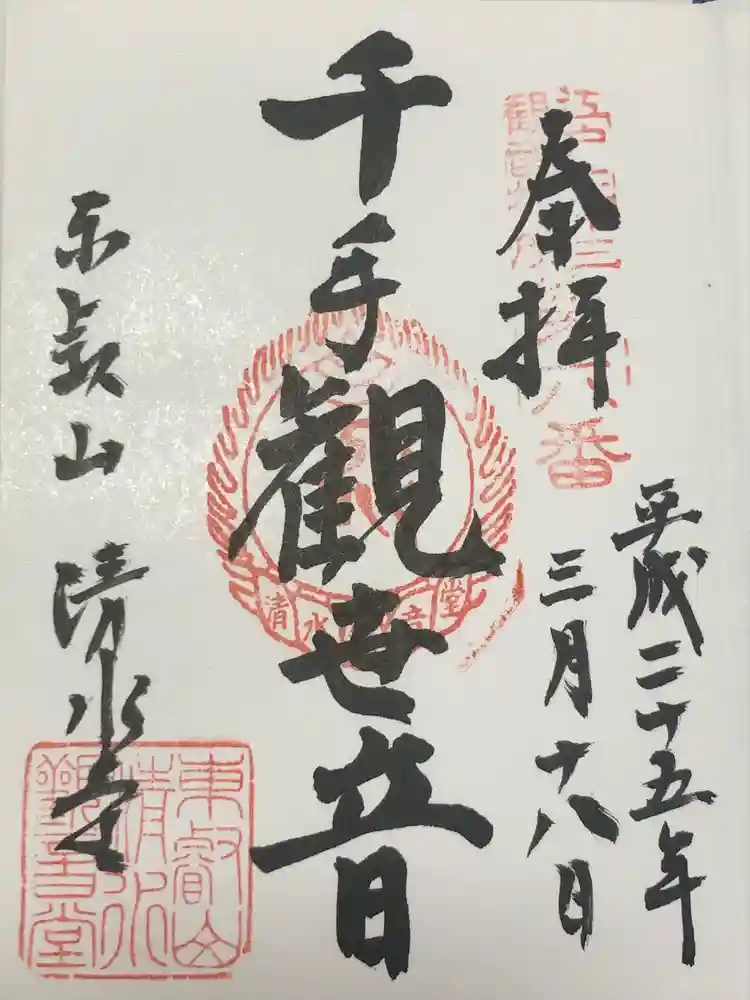 奉拝
平成二十五年
三月十八日
千手観世音
東叡山 清水堂
六番
清水観音堂
東叡山
清水
観音堂